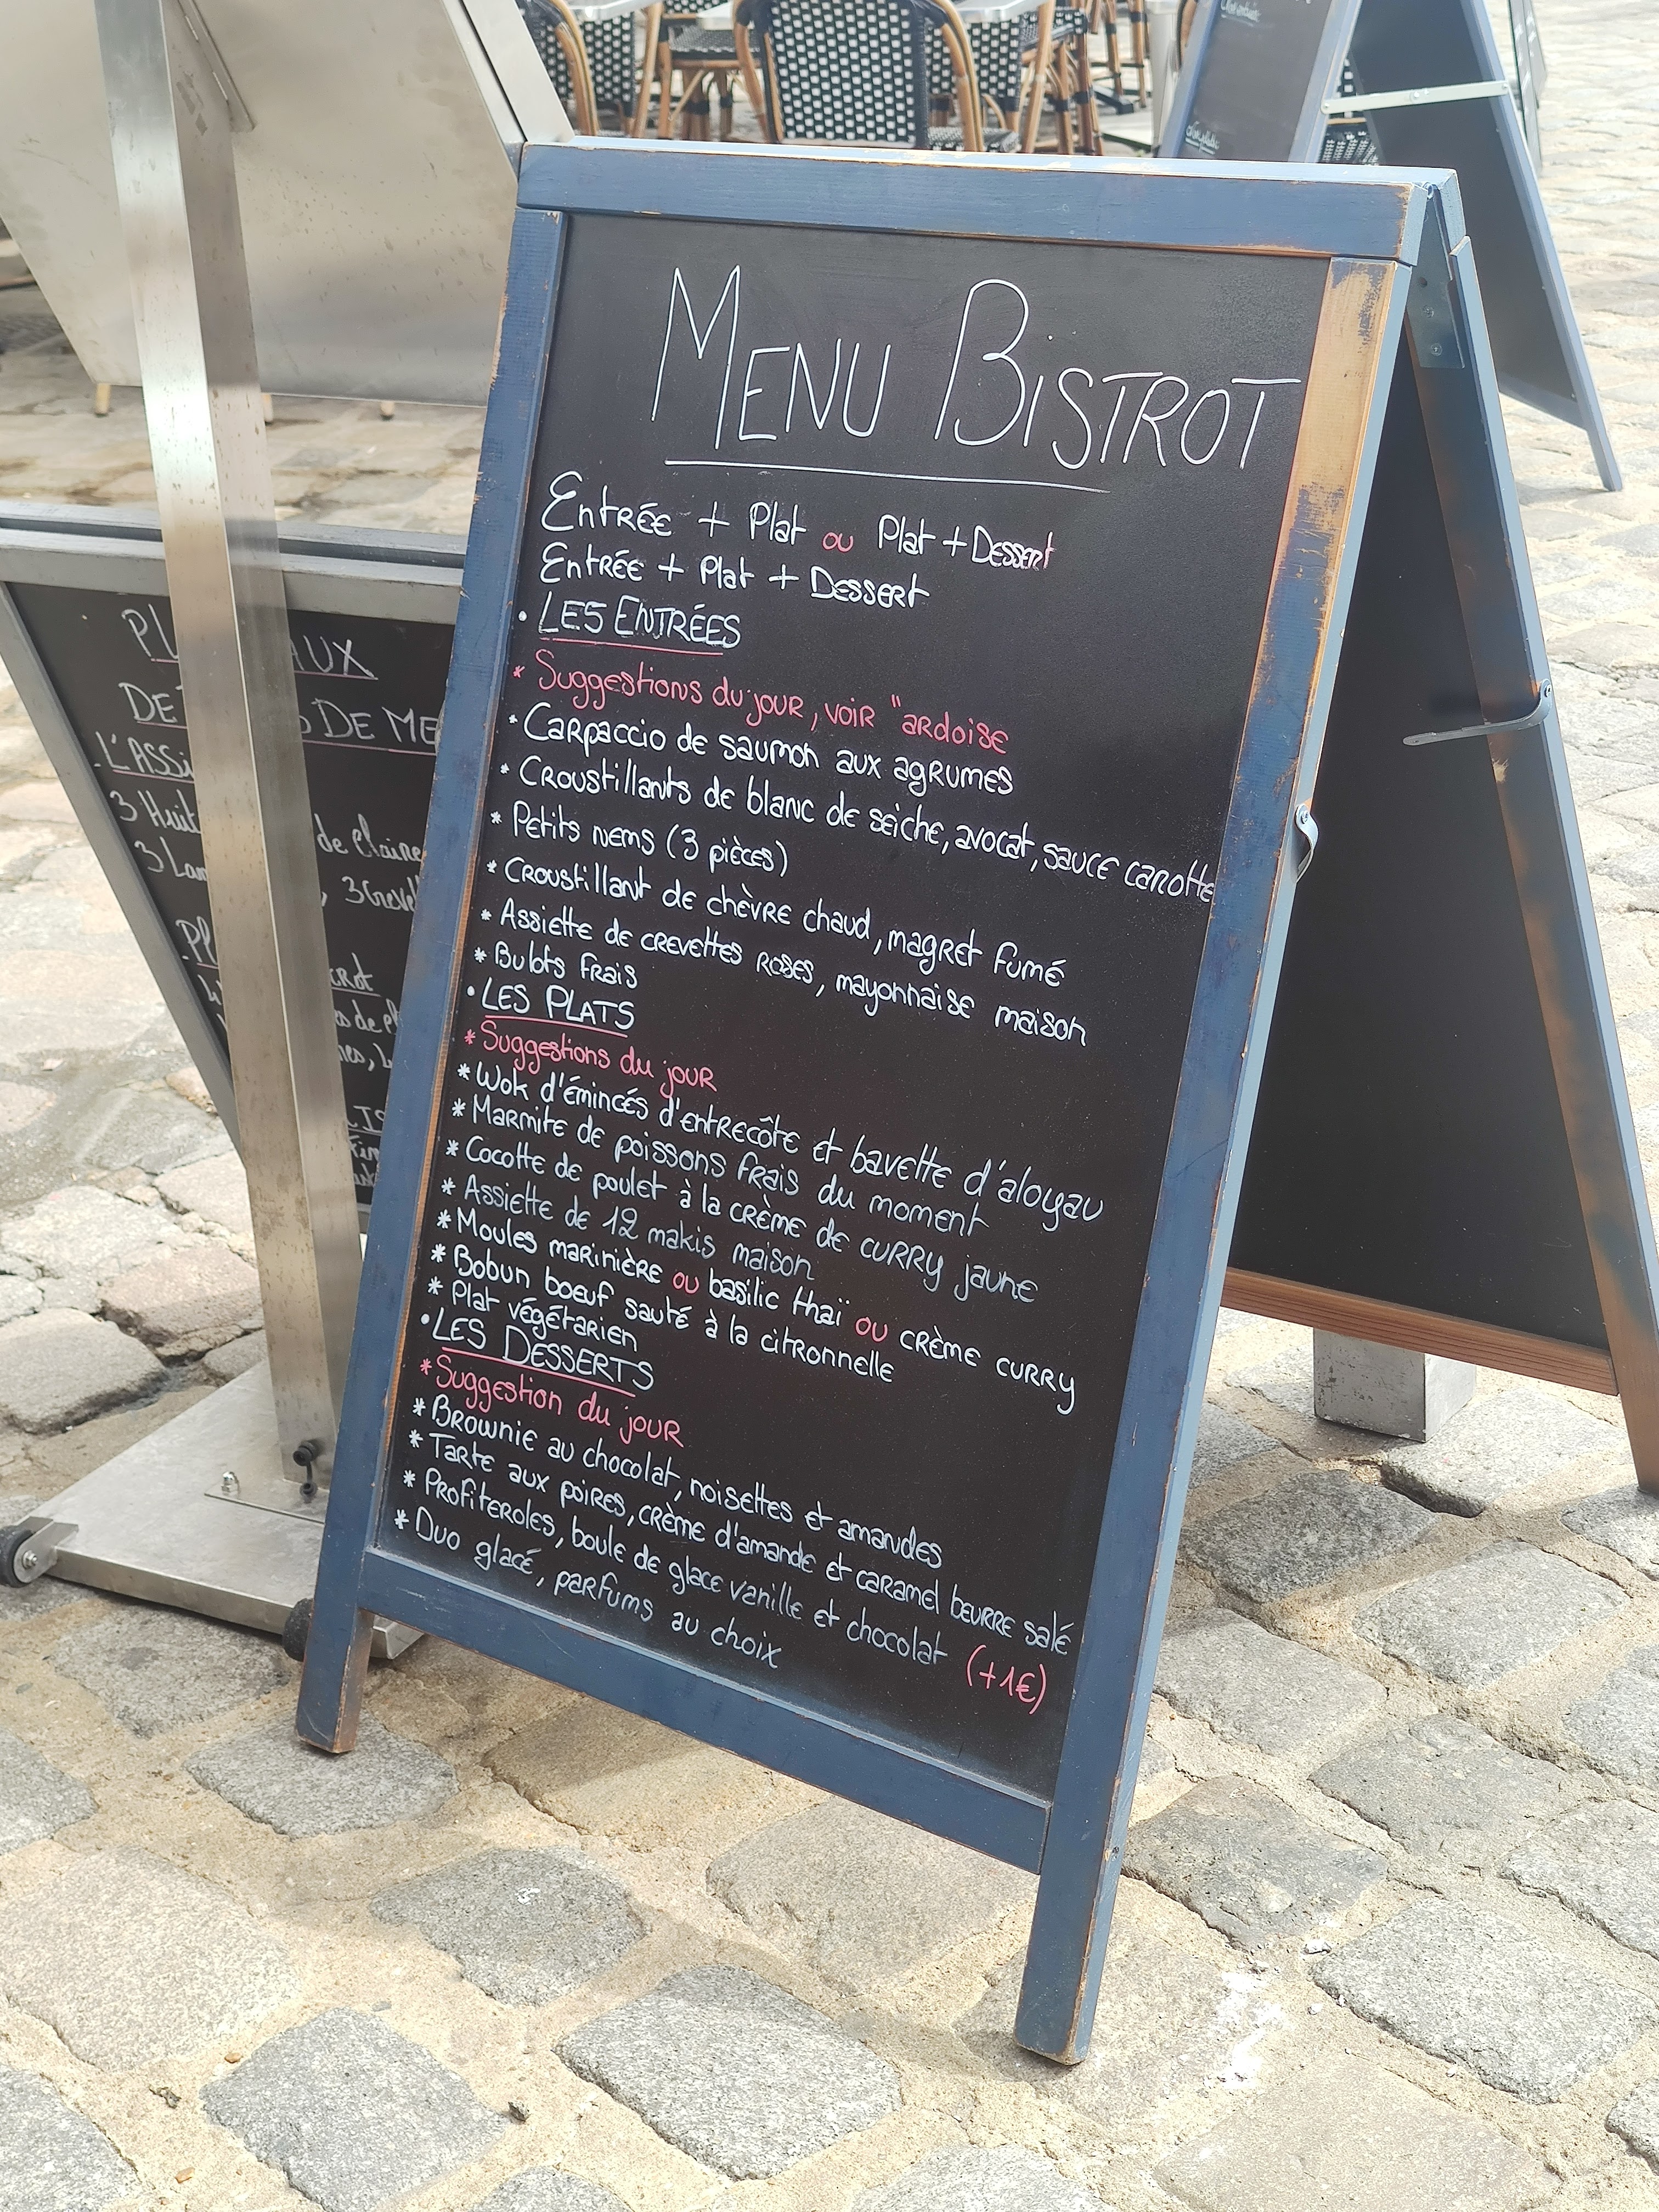 MENU BISTROT
Entrée + Plat ou Plat + Dessert
Entrée + Plat + Dessert
• LES ENTRÉES
* Suggestions du jour, voir "ardoise
* Carpaccio de saumon aux agrumes
* Croustillants de blanc de sèiche, avocat, sauce carotte
* Petits nems (3 pièces)
* Croustillant de chèvre chaud, magret fumé
* Assiette de crevettes roses, mayonnaise maison
* Bulots frais
• LES PLATS
* Suggestions du jour
* Wok d'émincés d'entrecôte et bavette d'aloyau
* Marmite de poissons frais du moment
* Cocotte de poulet à la crème de curry jaune
* Assiette de 12 makis maison
* Moules marinière ou basilic thaï ou crème curry
* Bobun boeuf sauté à la citronnelle
* Plat végétarien
• LES DESSERTS
* Suggestion du jour
* Brownie au chocolat, noisettes et amandes
* Tarte aux poires, crème d'amande et caramel beurre salé
* Profiteroles, boule de glace vanille et chocolat (+1€)
* Duo glacé, parfums au choix
DE ME
L'ASSI
3 Huit
de Claire
3 Lan
, 3 Crevet